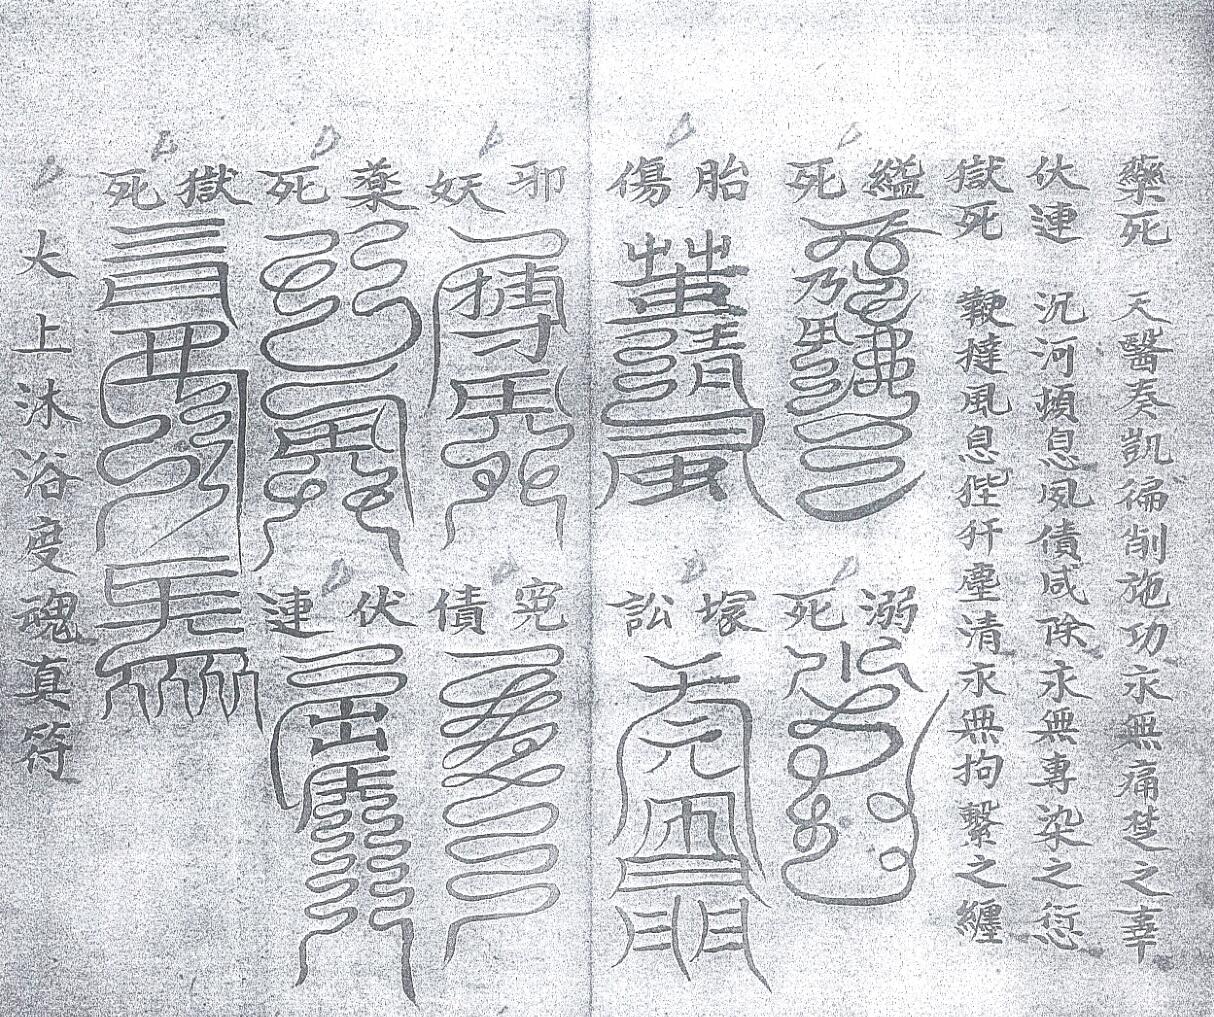 藥死　天醫奏凱徧削施功永無痛楚之辜
伏連　沉河頓息夙債咸除永無專染之愆
獄死　鞭撻風息狴犴塵清永無拘繫之纏
縊死
溺死
胎傷
塚訟
邪妖
冤債
藥死
伏連
獄死
太上沐浴度魂真符